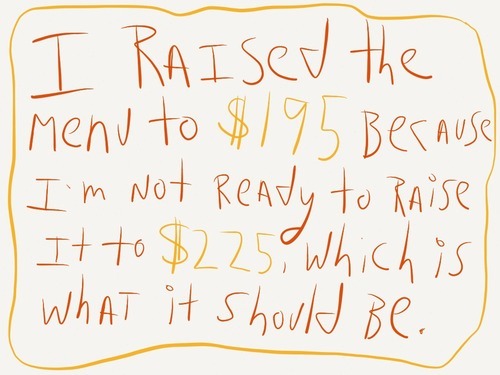 I RAISed the
Menu to $195 Because
I'm Not Ready to RAise
It to $225, which is
what it should Be.